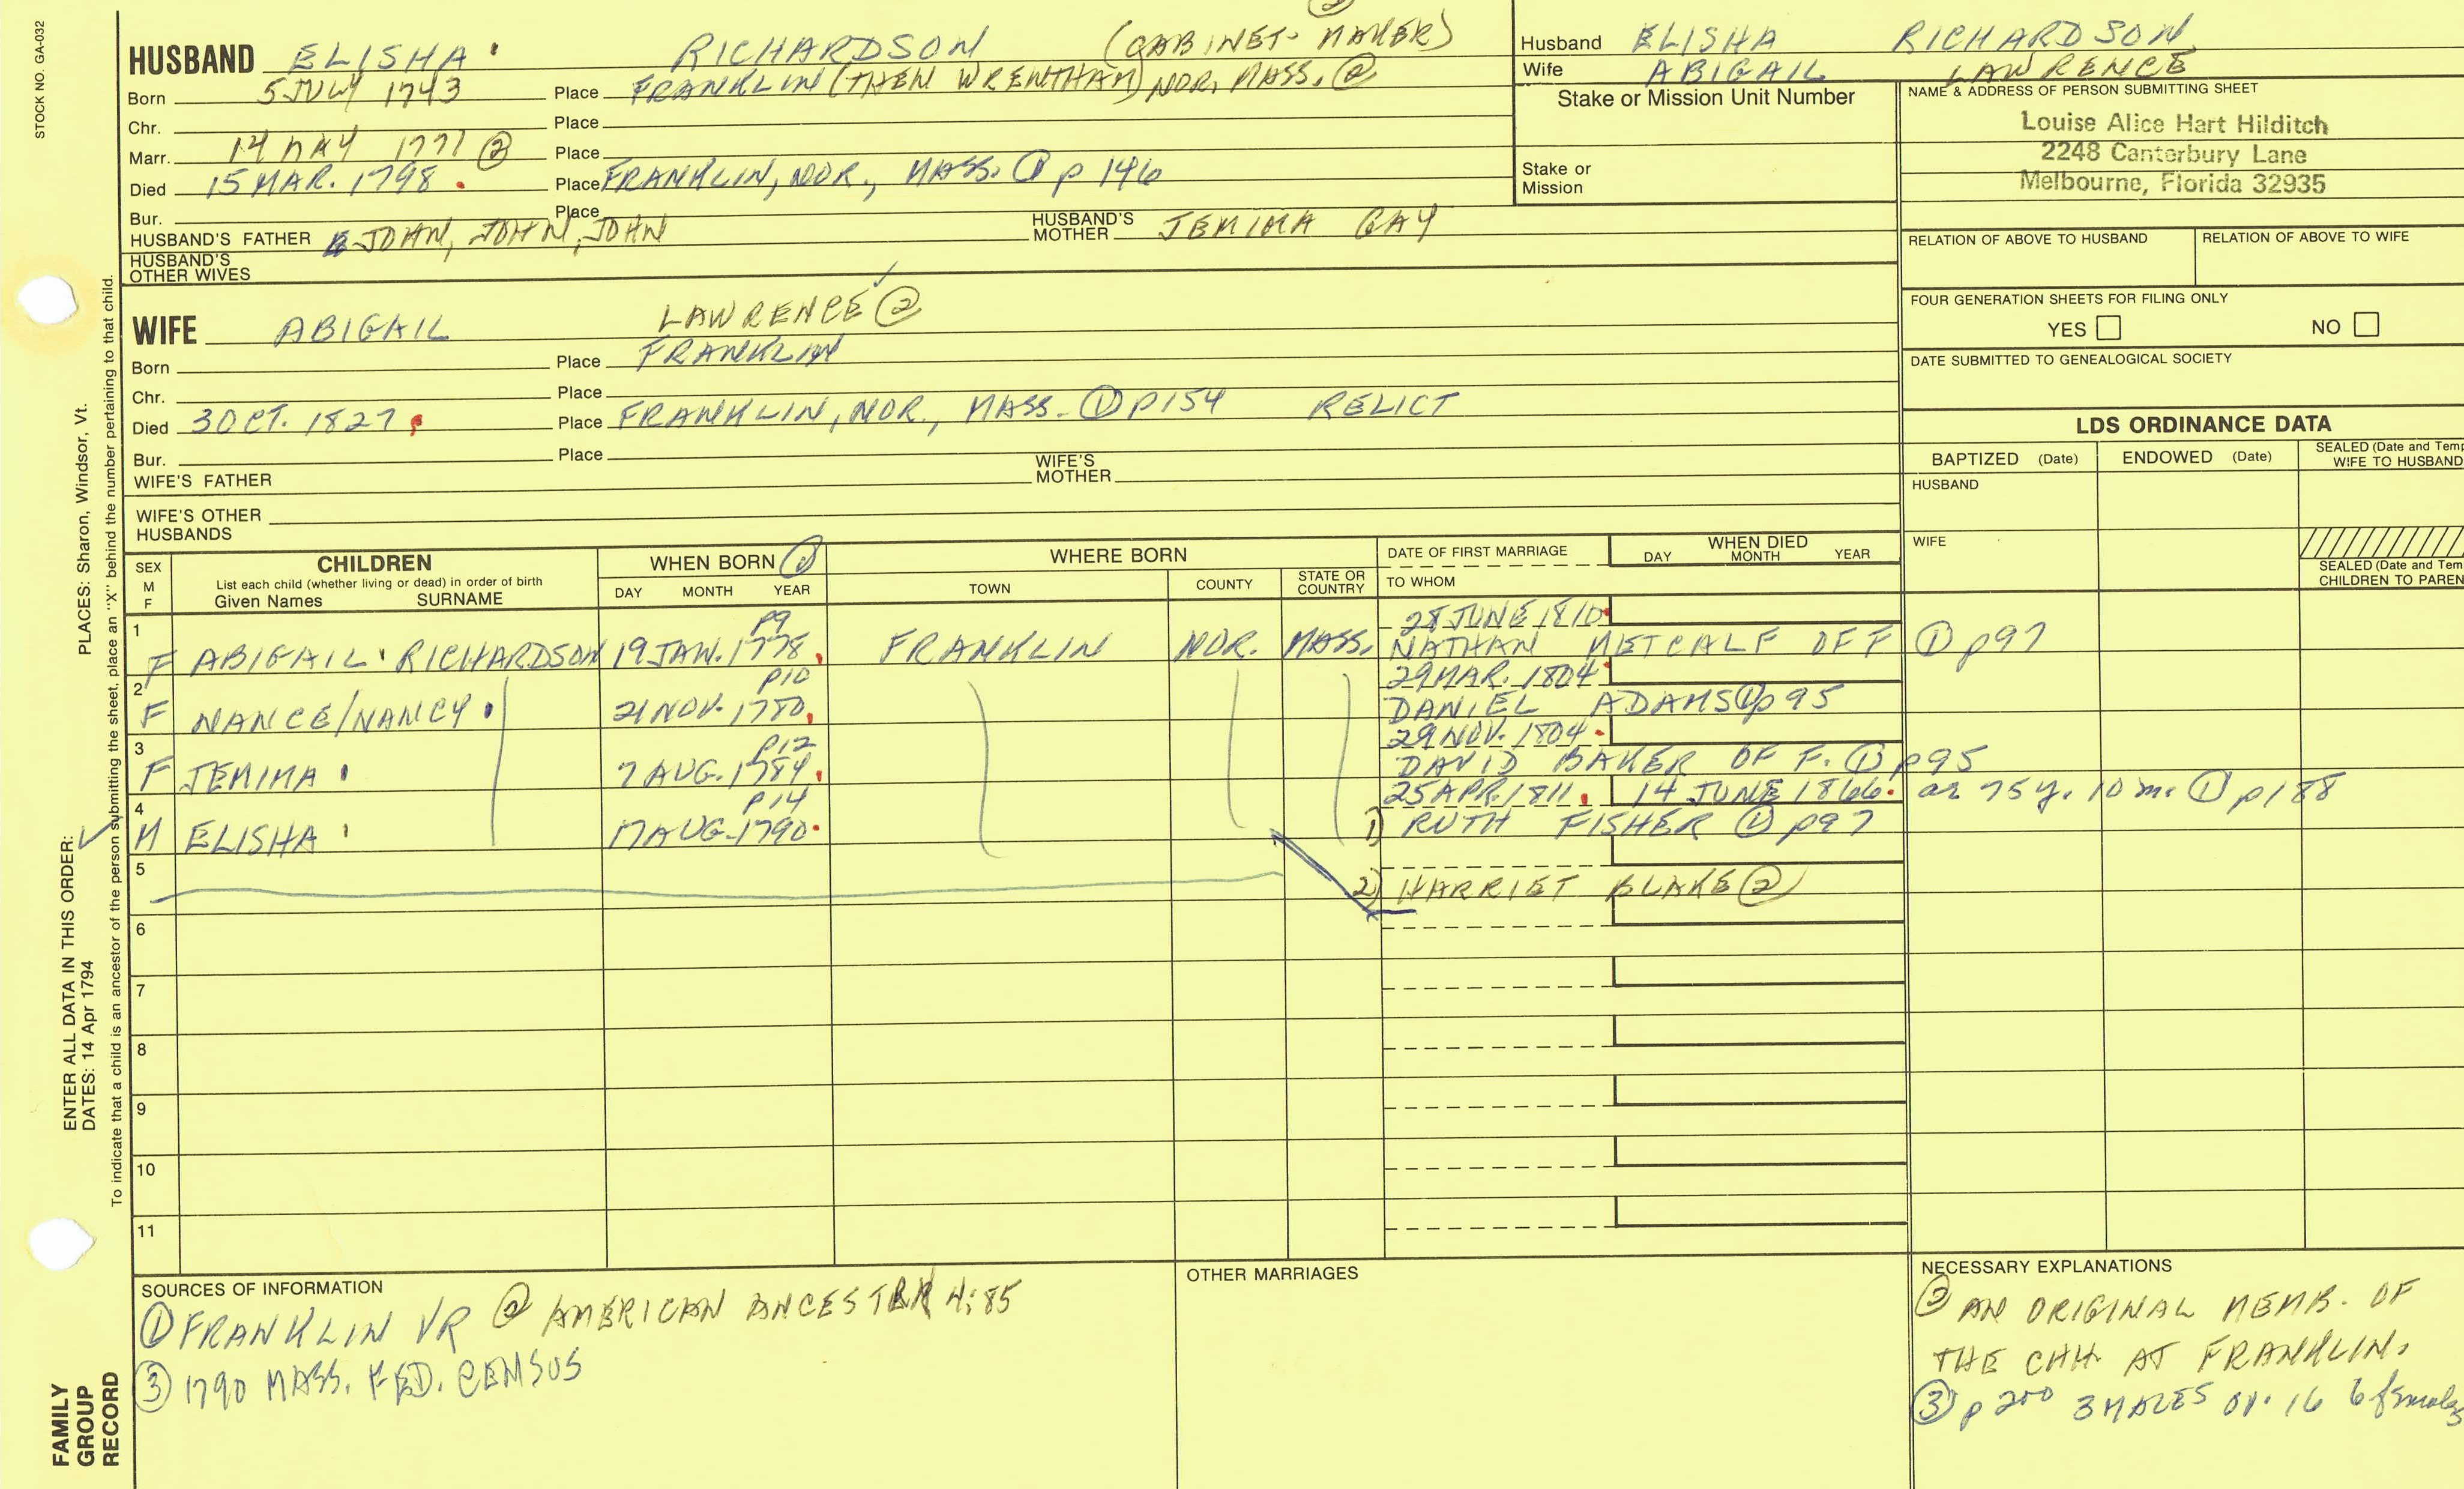 STOCK NO. GA-032
HUSBAND ELISHA RICHARDSON (CABINET-MAKER) ②
Born 5 JULY 1743 Place FRANKLIN (THEN WRENTHAM) NOR, MASS. ②
Chr. Place
Marr. 14 MAY 1777 ② Place
Died 15 MAR. 1798. Place FRANKLIN, NOR., MASS. ① p 146
Bur. Place
HUSBAND'S FATHER JOHN, JOHN, JOHN HUSBAND'S MOTHER JEMIMA GAY
HUSBAND'S OTHER WIVES
Husband ELISHA RICHARDSON
Wife ABIGAIL LAWRENCE
Stake or Mission Unit Number
Stake or Mission
NAME & ADDRESS OF PERSON SUBMITTING SHEET
Louise Alice Hart Hilditch
2248 Canterbury Lane
Melbourne, Florida 32935
RELATION OF ABOVE TO HUSBAND RELATION OF ABOVE TO WIFE
FOUR GENERATION SHEETS FOR FILING ONLY
YES NO
DATE SUBMITTED TO GENEALOGICAL SOCIETY
WIFE ABIGAIL LAWRENCE ②
Born Place FRANKLIN
Chr. Place
Died 3 OCT. 1827. Place FRANKLIN, NOR., MASS. ① P154 RELICT
Bur. Place
WIFE'S FATHER WIFE'S MOTHER
WIFE'S OTHER HUSBANDS
LDS ORDINANCE DATA
BAPTIZED (Date) ENDOWED (Date) SEALED (Date and Temp
WIFE TO HUSBAND
HUSBAND
WIFE
SEALED (Date and Tem
CHILDREN TO PAREN
SEX M F CHILDREN WHEN BORN ① WHERE BORN DATE OF FIRST MARRIAGE WHEN DIED
List each child (whether living or dead) in order of birth
Given Names SURNAME DAY MONTH YEAR TOWN COUNTY STATE OR COUNTRY TO WHOM DAY MONTH YEAR
1 P9 28 JUNE 1810.
F ABIGAIL RICHARDSON 19 JAN. 1778. FRANKLIN NOR. MASS. NATHAN METCALF OF F ① p97
2 P10 29 MAR. 1804.
F NANCE/NANCY 21 NOV. 1780. DANIEL ADAMS ① p 95
3 P12 29 NOV. 1804.
F JEMIMA 7 AUG. 1784. DAVID BAKER OF F. ① p95
4 P14 25 APR. 1811. 14 JUNE 1866. ae 75 y. 10 m. ① p188
M ELISHA 17 AUG. 1790. 1) RUTH FISHER ① p97
5 2) HARRIET BLAKE ②
6
7
8
9
10
11
SOURCES OF INFORMATION
① FRANKLIN VR ② AMERICAN ANCESTRY 4:85
③ 1790 MASS. FED. CENSUS
OTHER MARRIAGES
NECESSARY EXPLANATIONS
② AN ORIGINAL MEMB. OF
THE CHH AT FRANKLIN.
③ p 200 3 MALES ov. 16 6 females
PLACES: Sharon, Windsor, Vt.
ENTER ALL DATA IN THIS ORDER:
DATES: 14 Apr 1794
To indicate that a child is an ancestor of the person submitting the sheet, place an "X" behind the number pertaining to that child.
FAMILY
GROUP
RECORD